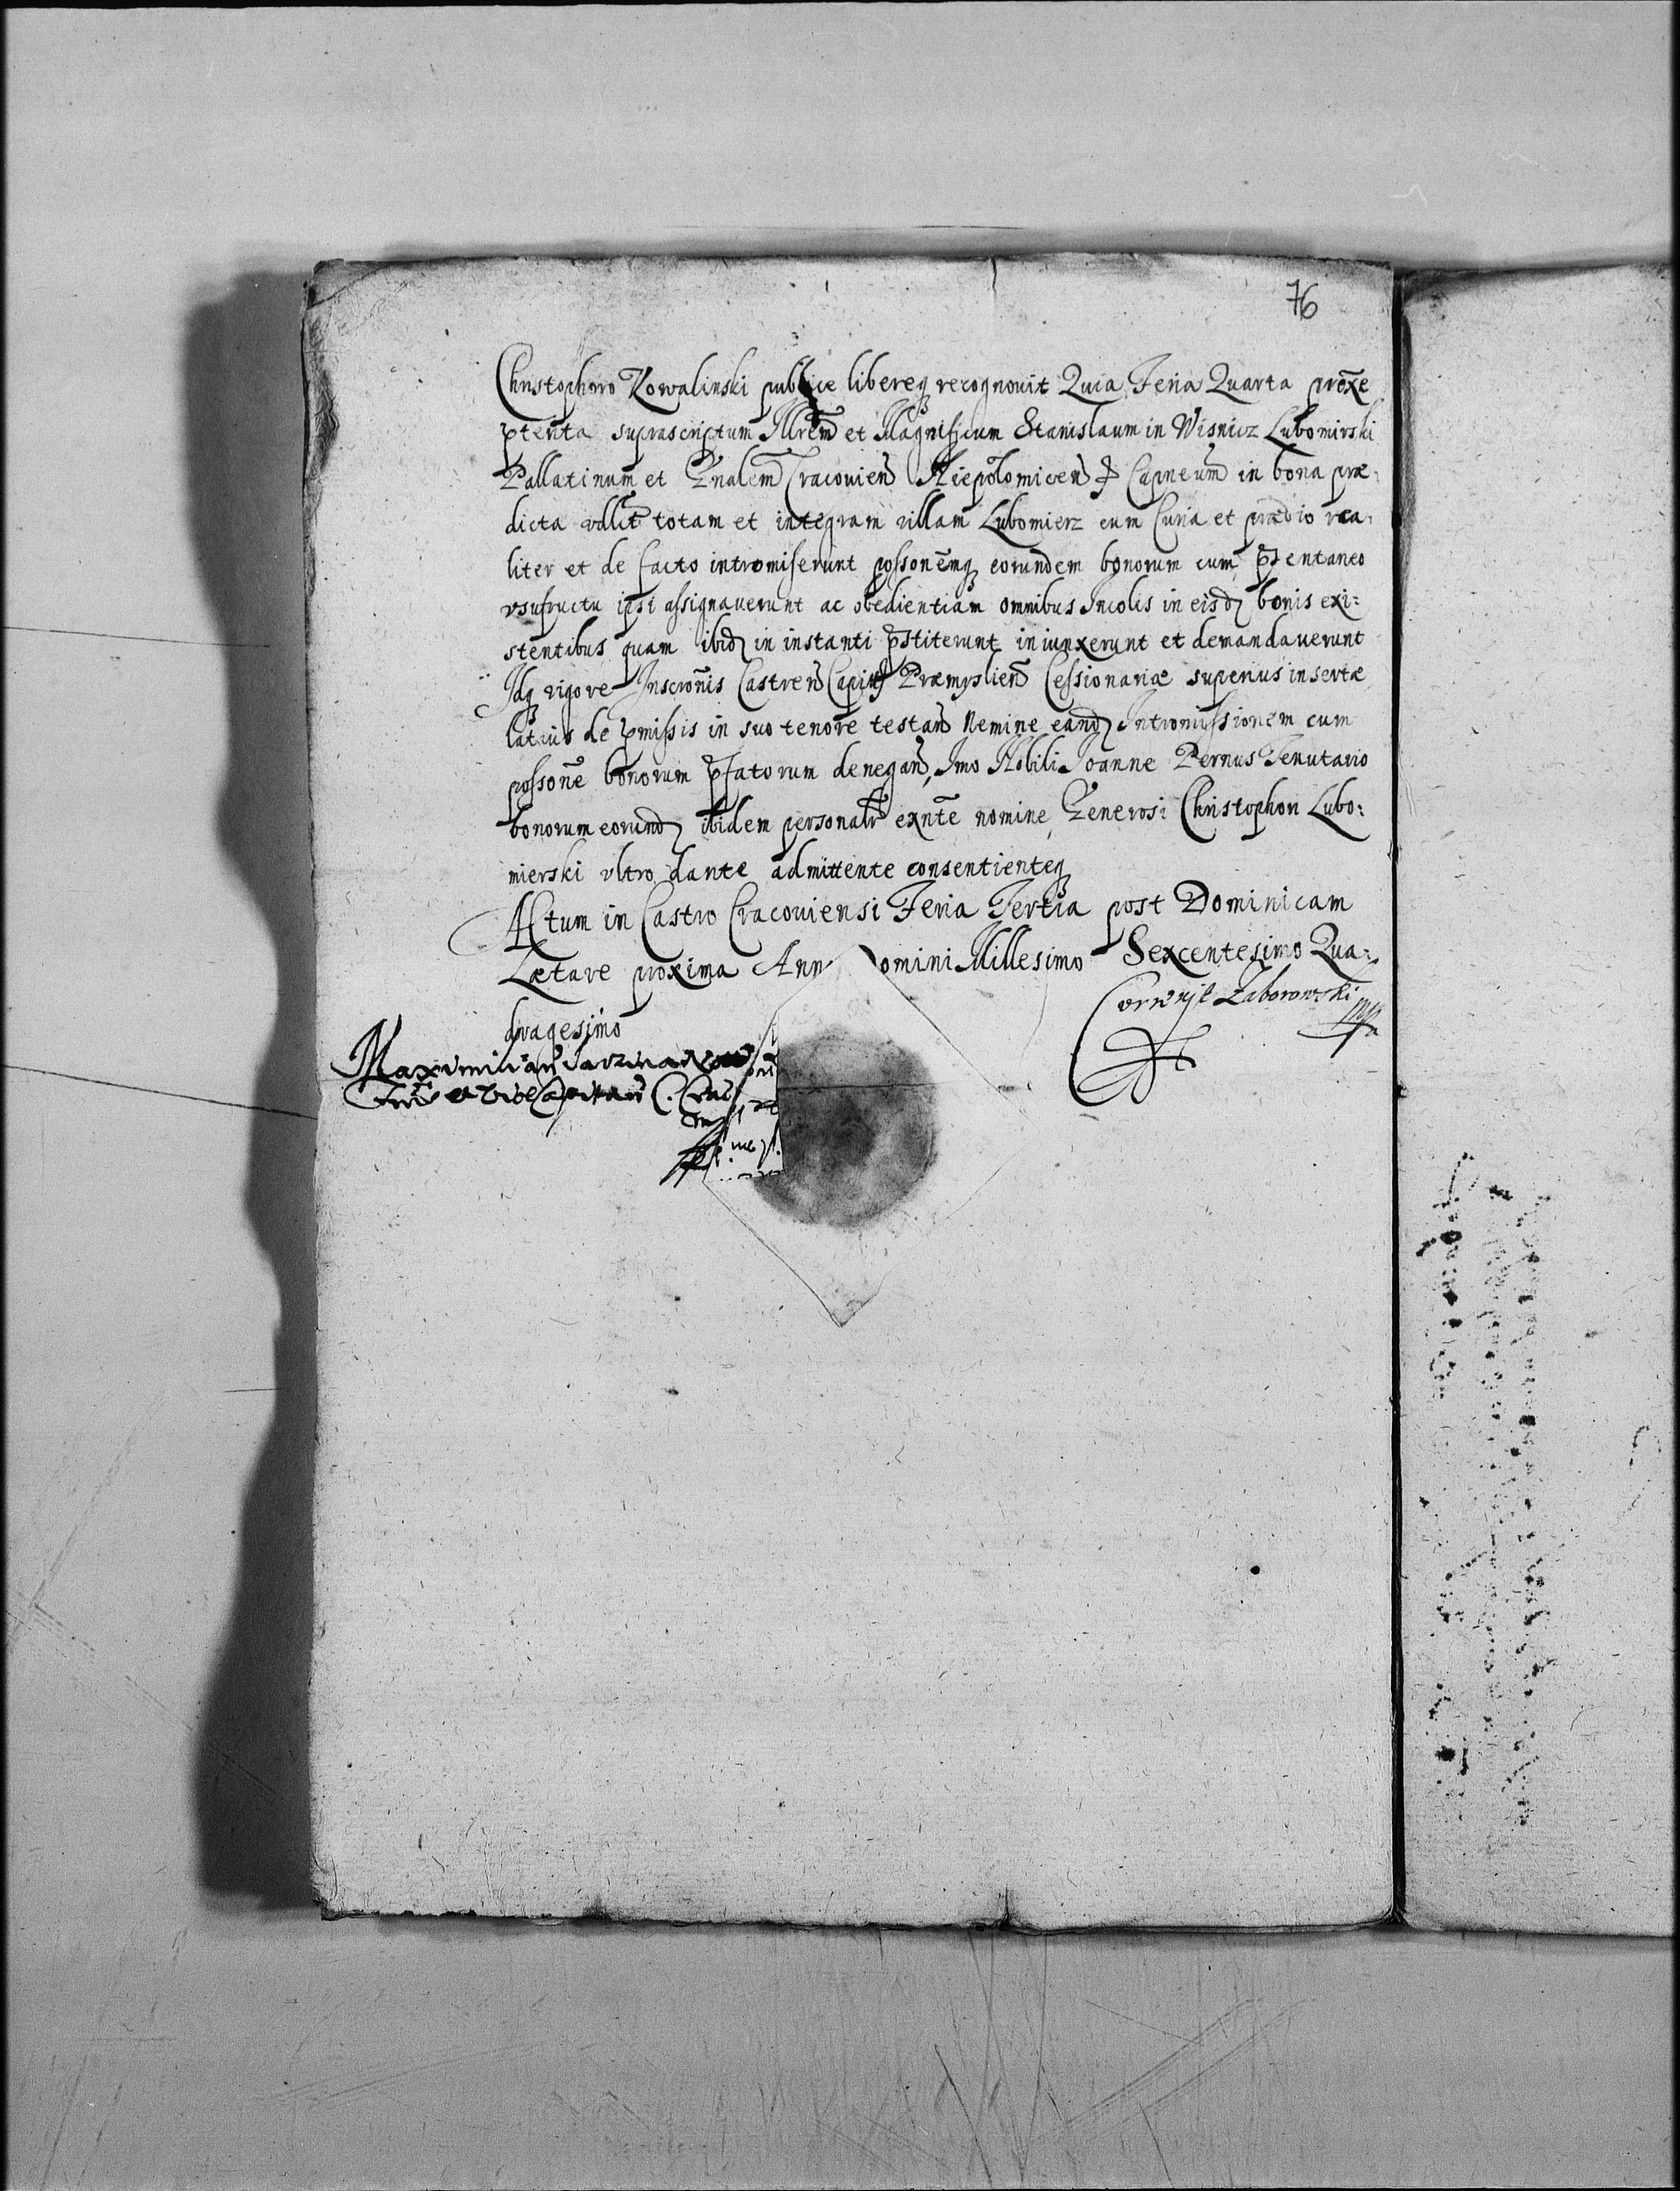 76
Christophoro Kowalinski publice libereq recognovit Quia Feria Quarta proxe
pterita suprascriptum Illrem et Magnificum Stanislaum in Wisnicz Lubomirski
Pallatinum et Gnalem Cracovien Niepolomicen Capneum in bona præ-
dicta vdlct totam et integram villam Lubomierz cum Curia et prædio rea-
liter et de facto intromiserunt possonemq eorundem bonorum cum pventaneo
vsufructu ipsi assignaverunt ac obedientiam omnibus Incolis in eisd bonis exi:
stentibus quam ibid in instanti pstiterunt iniunxerunt et demandaverunt
Idq vigore Inscronis Castren Capit Præmyslien Cessionariæ superius insertæ
latius de pmissis in suo tenore testan Nemine eand Intromissionem cum
possone bonorum pfatorum denegan, Imo Nobili Joanne Pernus Tenutario
bonorum eorund ibidem personalr exnte nomine Generosi Christophori Lubo:
mierski vltro dante admittente consentienteq
Actum in Castro Cracoviensi Feria Tertia post Dominicam
Lætare proxima Ann omini Millesimo Sexcentesimo Qua:
dragesimo
Correxit Zaborowski mpa
Maximilian
et Vice Capitan C. Crac